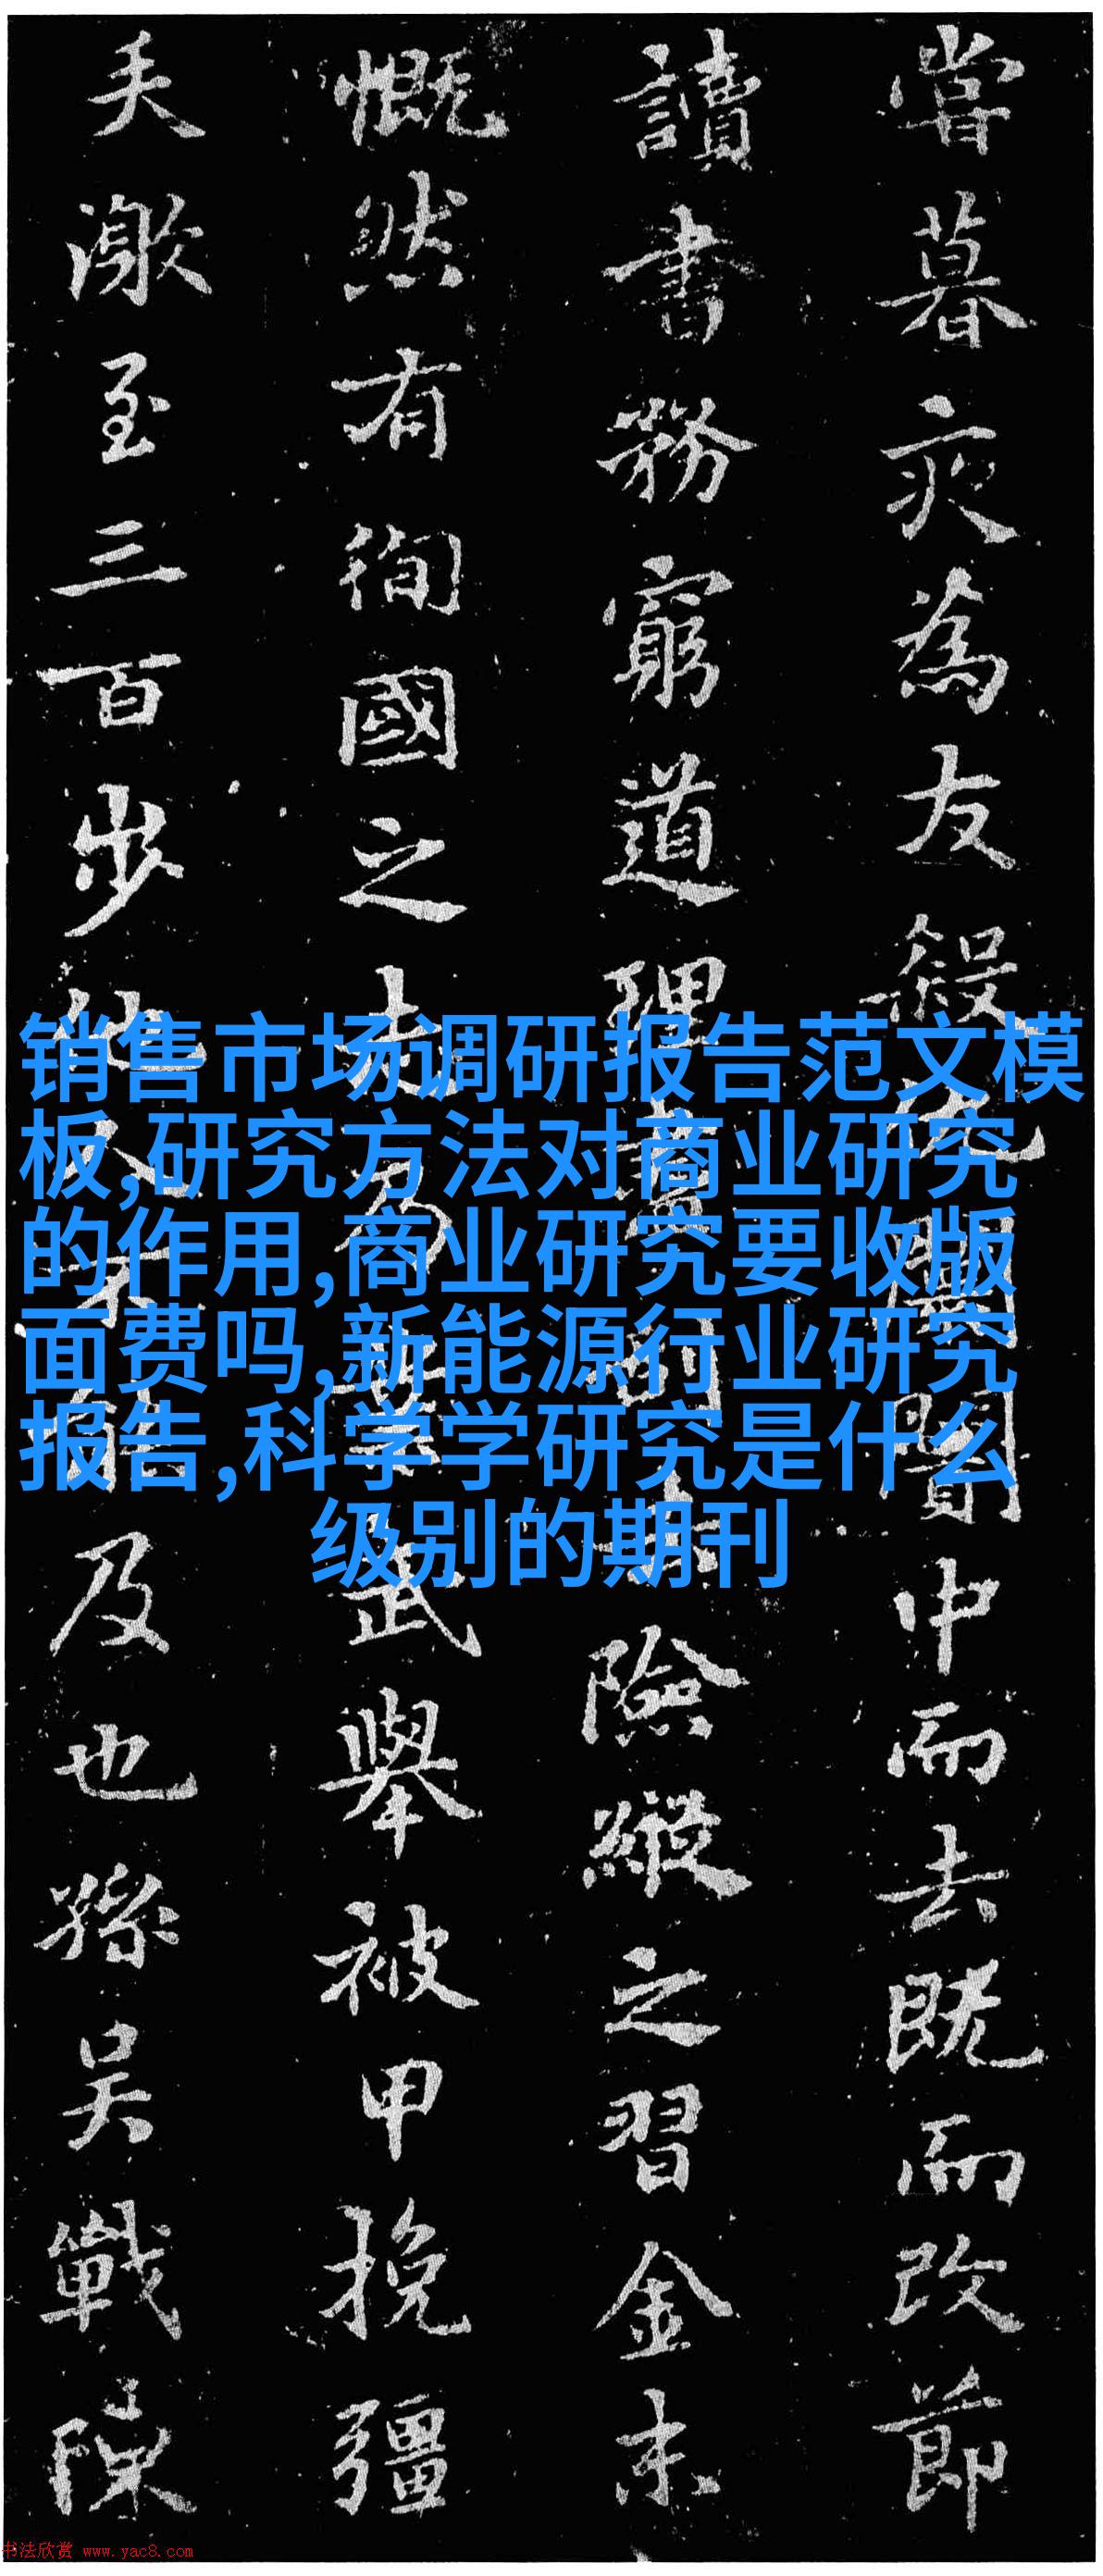 嘗暮夾為友殺中而去既而改節
讀書務窮道理險縱之習金末
慨然有徇國之志武舉被甲挽彊
矢激至三百步他及也孫吳戰陳
销售市场调研报告范文模
板,研究方法对商业研究
的作用,商业研究要收版
面费吗,新能源行业研究
报告,科学学研究是什么
级别的期刊
书法欣赏 www.yac8.com